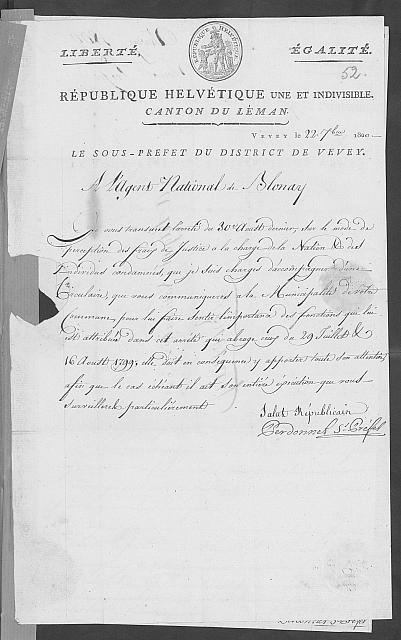 LIBERTÉ.
ÉGALITÉ.
52.
RÉPUBLIQUE HELVÉTIQUE UNE ET INDIVISIBLE.
CANTON DU LÉMAN.
VEVEY le 22. 7bre 1800
LE SOUS-PRÉFET DU DISTRICT DE VEVEY.
A L'Agent National de Blonay
Je vous transmet l'arreté du 30e Aoust dernier, sur le mode de
perception des fraix de Justice a la charge de la Nation & des
Individus condamnés, que je suis chargé d'accompagner d'une
Circulaire, que vous communiquerés a la Municipalité de votre
Commune, pour lui faire sentir l'importance des fonctions que lui
est attribué dans cet arreté qui abroge ceux du 29 Juillet &
16 Aoust 1799; elle doit en consequence y apporter toute son attention
afin que le cas échéant il ait son entière éxécution que vous
surveillerés particulièrement
Salut Républicain
Perdonnet Ss Préfet